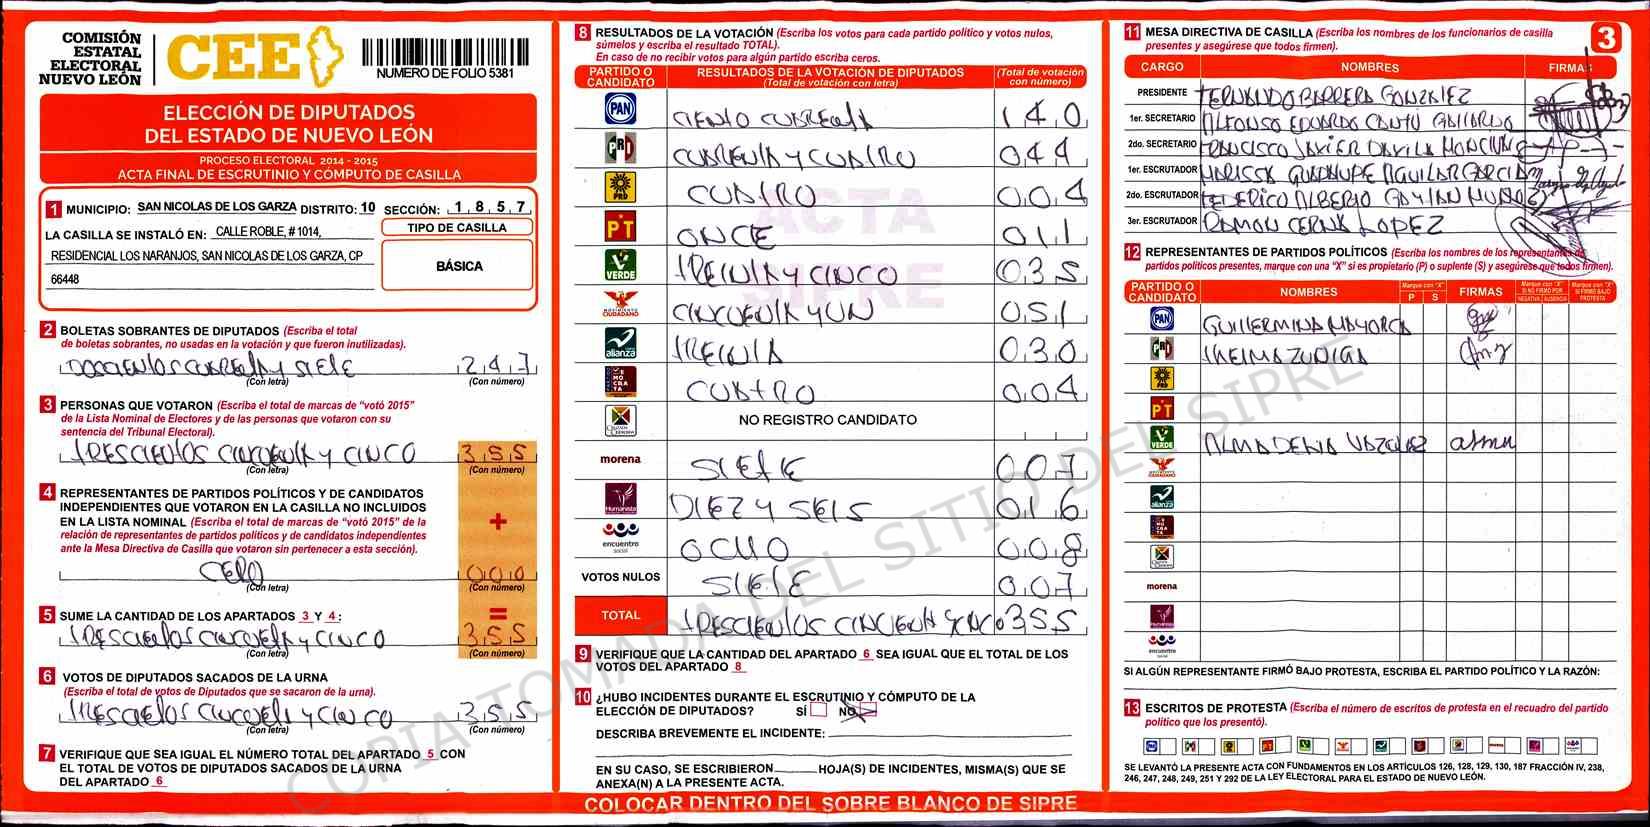 COMISIÓN
ESTATAL
ELECTORAL
NUEVO LEÓN
CEE
NUMERO DE FOLIO 5381
ELECCIÓN DE DIPUTADOS
DEL ESTADO DE NUEVO LEÓN
PROCESO ELECTORAL 2014 - 2015
ACTA FINAL DE ESCRUTINIO Y CÓMPUTO DE CASILLA
1 MUNICIPIO: SAN NICOLAS DE LOS GARZA DISTRITO: 10 SECCIÓN: 1 8 5 7
LA CASILLA SE INSTALÓ EN: CALLE ROBLE, # 1014,
RESIDENCIAL LOS NARANJOS, SAN NICOLAS DE LOS GARZA, CP
66448
TIPO DE CASILLA
BÁSICA
2 BOLETAS SOBRANTES DE DIPUTADOS (Escriba el total
de boletas sobrantes, no usadas en la votación y que fueron inutilizadas).
DOSCIENTOS CUARENTA Y SIETE 2 4 7
(Con letra) (Con número)
3 PERSONAS QUE VOTARON (Escriba el total de marcas de “votó 2015”
de la Lista Nominal de Electores y de las personas que votaron con su
sentencia del Tribunal Electoral).
TRESCIENTOS CINCUENTA Y CINCO 3 5 5
(Con letra) (Con número)
4 REPRESENTANTES DE PARTIDOS POLÍTICOS Y DE CANDIDATOS
INDEPENDIENTES QUE VOTARON EN LA CASILLA NO INCLUIDOS
EN LA LISTA NOMINAL (Escriba el total de marcas de “votó 2015” de la
relación de representantes de partidos políticos y de candidatos independientes
ante la Mesa Directiva de Casilla que votaron sin pertenecer a esta sección).
+
CERO 0 0 0
(Con letra) (Con número)
5 SUME LA CANTIDAD DE LOS APARTADOS 3 Y 4: =
TRESCIENTOS CINCUENTA Y CINCO 3 5 5
(Con letra) (Con número)
6 VOTOS DE DIPUTADOS SACADOS DE LA URNA
(Escriba el total de votos de Diputados que se sacaron de la urna).
TRESCIENTOS CINCUENTA Y CINCO 3 5 5
(Con letra) (Con número)
7 VERIFIQUE QUE SEA IGUAL EL NÚMERO TOTAL DEL APARTADO 5 CON
EL TOTAL DE VOTOS DE DIPUTADOS SACADOS DE LA URNA
DEL APARTADO 6
8 RESULTADOS DE LA VOTACIÓN (Escriba los votos para cada partido político y votos nulos,
súmelos y escriba el resultado TOTAL).
En caso de no recibir votos para algún partido escriba ceros.
PARTIDO O CANDIDATO RESULTADOS DE LA VOTACIÓN DE DIPUTADOS (Total de votación con letra) (Total de votación con número)
PAN CIENTO CUARENTA 1 4 0
PRI CUARENTA Y CUATRO 0 4 4
PRD CUATRO 0 0 4
PT ONCE 0 1 1
VERDE TREINTA Y CINCO 0 3 5
MOVIMIENTO CIUDADANO CINCUENTA Y UN 0 5 1
alianza TREINTA 0 3 0
DEMOCRATA CUATRO 0 0 4
CRUZADA CIUDADANA NO REGISTRO CANDIDATO
morena SIETE 0 0 7
Humanista DIEZ Y SEIS 0 1 6
encuentro social OCHO 0 0 8
VOTOS NULOS SIETE 0 0 7
TOTAL TRESCIENTOS CINCUENTA Y CINCO 3 5 5
ACTA
SIPRE
9 VERIFIQUE QUE LA CANTIDAD DEL APARTADO 6 SEA IGUAL QUE EL TOTAL DE LOS
VOTOS DEL APARTADO 8
10 ¿HUBO INCIDENTES DURANTE EL ESCRUTINIO Y CÓMPUTO DE LA
ELECCIÓN DE DIPUTADOS? SÍ NO X
DESCRIBA BREVEMENTE EL INCIDENTE:
EN SU CASO, SE ESCRIBIERON HOJA(S) DE INCIDENTES, MISMA(S) QUE SE
ANEXA(N) A LA PRESENTE ACTA.
COLOCAR DENTRO DEL SOBRE BLANCO DE SIPRE
11 MESA DIRECTIVA DE CASILLA (Escriba los nombres de los funcionarios de casilla
presentes y asegúrese que todos firmen).
3
CARGO NOMBRES FIRMAS
PRESIDENTE FERNANDO BARRERA GONZALEZ
1er. SECRETARIO ALFONSO EDUARDO CANTU GALLARDO
2do. SECRETARIO FRANCISCO JAVIER DAVILA
1er. ESCRUTADOR MARISSA GUADALUPE AGUILAR GARCIA
2do. ESCRUTADOR FEDERICO ALBERTO GAYTAN
3er. ESCRUTADOR RAMON CERNA LOPEZ
12 REPRESENTANTES DE PARTIDOS POLÍTICOS (Escriba los nombres de los representantes de
partidos políticos presentes, marque con una “X” si es propietario (P) o suplente (S) y asegúrese que todos firmen).
PARTIDO O CANDIDATO NOMBRES Marque con “X” P S FIRMAS Marque con “X” SI NO FIRMÓ POR NEGATIVA AUSENCIA Marque con “X” SI FIRMÓ BAJO PROTESTA
PAN GUILLERMINA MAYORGA
PRI THELMA ZUÑIGA
PRD
PT
VERDE ALMA DELIA VAZQUEZ alma
MOVIMIENTO CIUDADANO
alianza
DEMOCRATA
morena
Humanista
encuentro social
SI ALGÚN REPRESENTANTE FIRMÓ BAJO PROTESTA, ESCRIBA EL PARTIDO POLÍTICO Y LA RAZÓN:
13 ESCRITOS DE PROTESTA (Escriba el número de escritos de protesta en el recuadro del partido
político que los presentó).
SE LEVANTÓ LA PRESENTE ACTA CON FUNDAMENTOS EN LOS ARTÍCULOS 126, 128, 129, 130, 187 FRACCIÓN IV, 238,
246, 247, 248, 249, 251 Y 292 DE LA LEY ELECTORAL PARA EL ESTADO DE NUEVO LEÓN.
COPIA TOMADA DEL SITIO DEL SIPRE